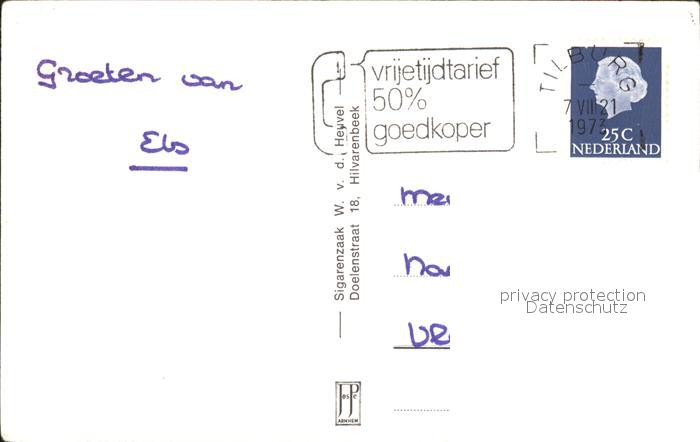 Groeten van
Els
vrijetijdtarief
50%
goedkoper
TILBURG
7 VIII 21
1973
25C
NEDERLAND
Sigarenzaak W. v. d. Heuvel
Doelenstraat 18, Hilvarenbeek
privacy protection
Datenschutz
ARNHEM